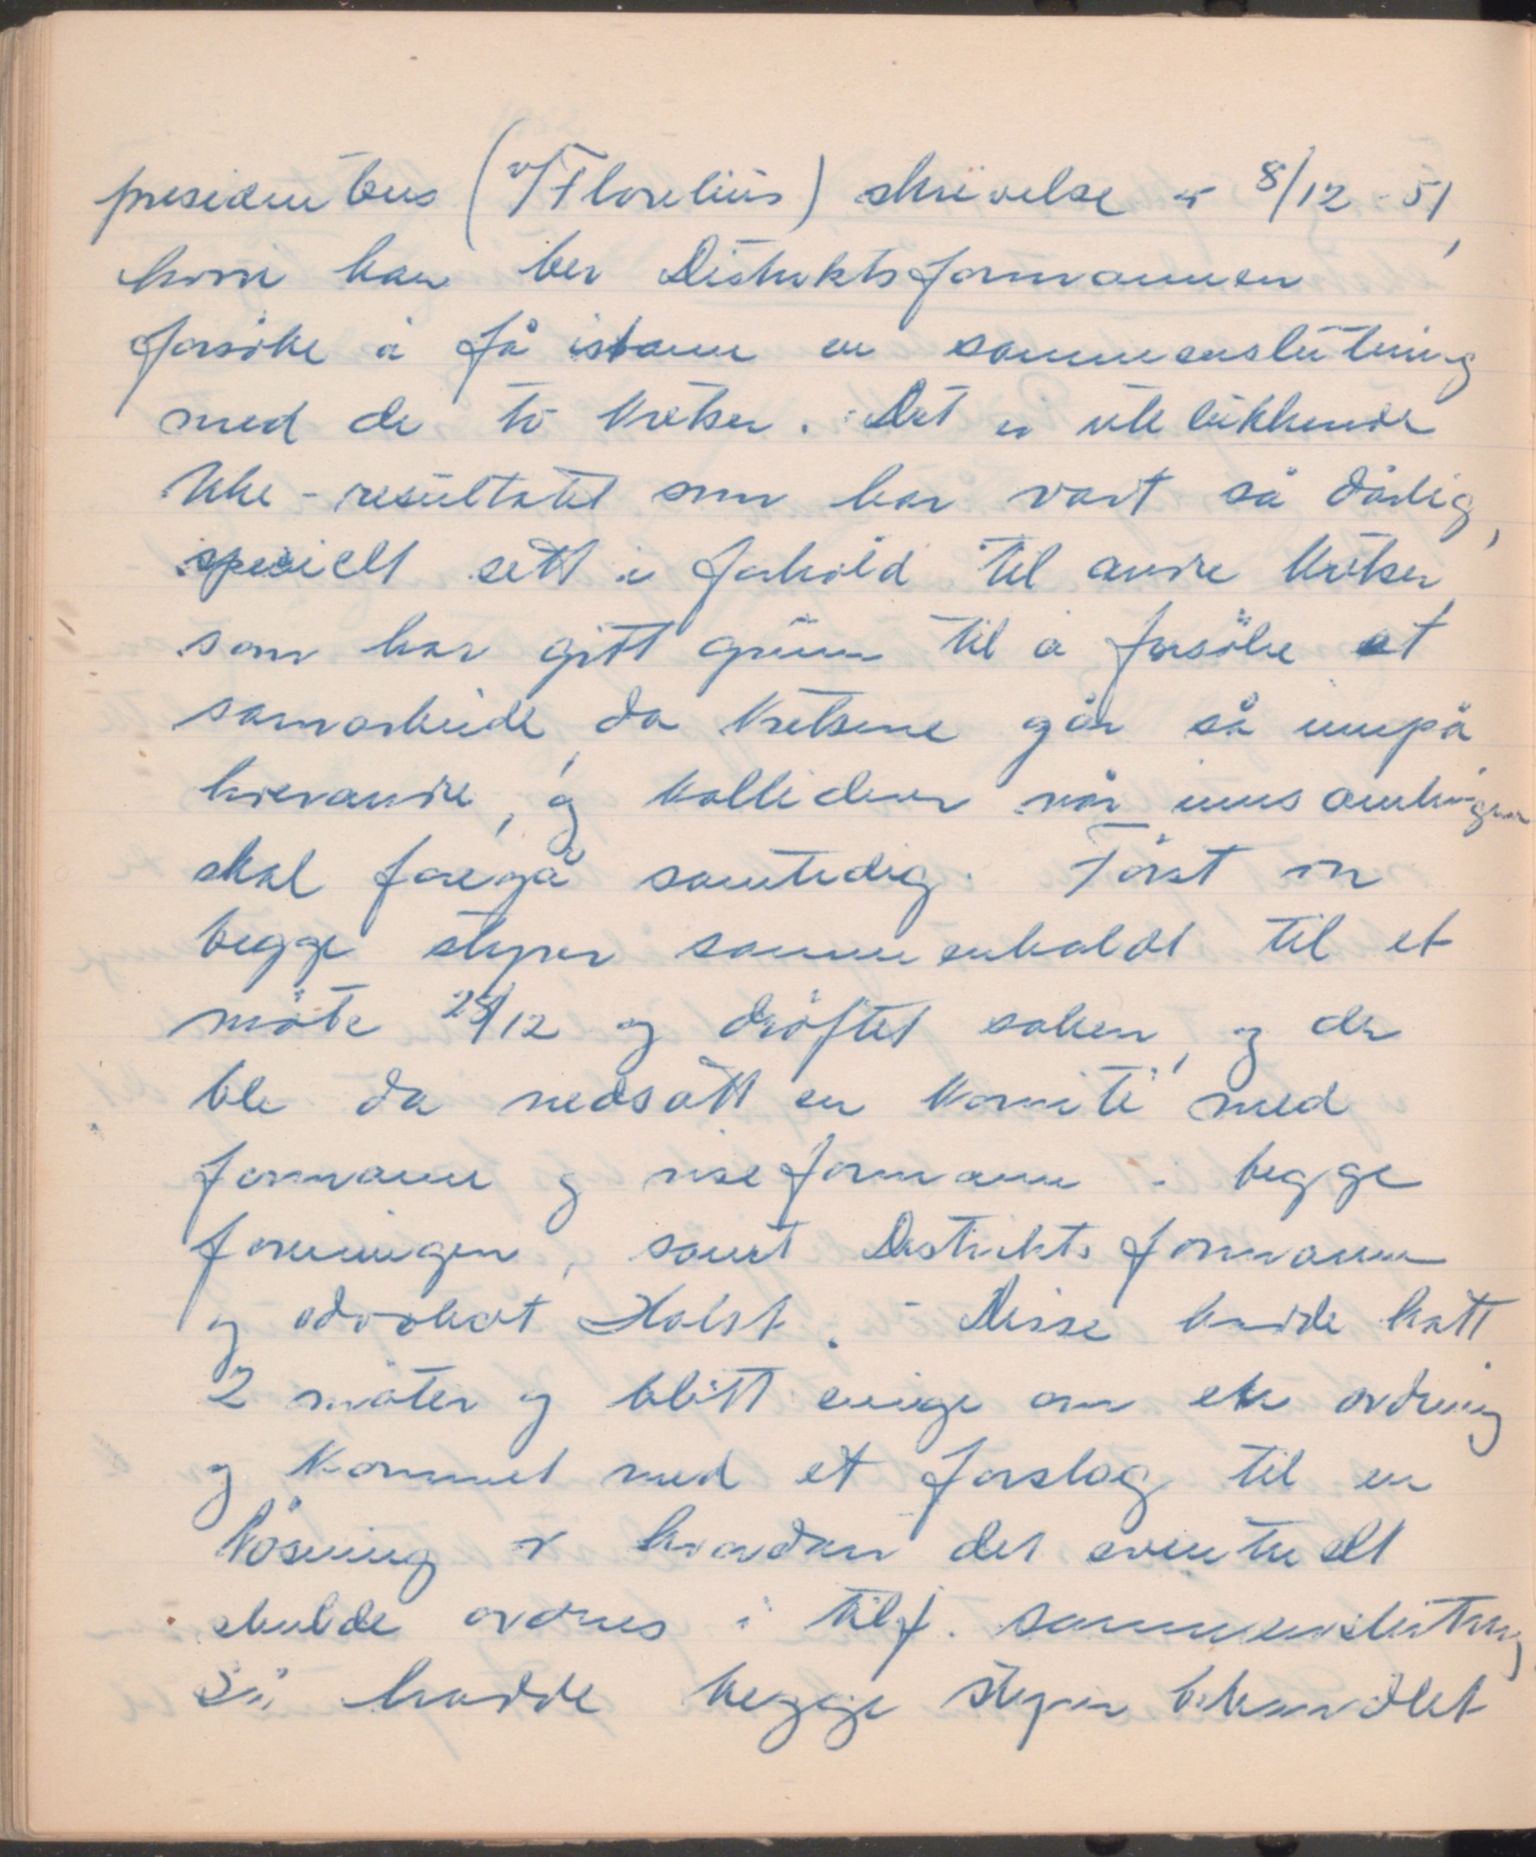 presidentens (v/ Florelius) skrivelse av 8/12-51,
hvori han ber Distriktsformannen
forsöke å få istann en sammenslutning
med de to kretser. Det er utelukkende
Uke-resultatet som har vært så dårlig,
spesielt sett i forhold til andre kretser,
som har gitt grunn til å forsöke et
samarbeide, da kretsene går så innpå
hverandre, og kolliderer når innsamlinger
skal foregå samtidig. Först er
begge styrer sammenkaldt til et
möte 28/12 og dröftet saken, og der
ble da nedsatt en komité med
formann og viseformann i begge
foreninger, samt Distriktsformann
og advokat Holst. - Disse hadde hatt
2 möter og blitt enige om en ordning
og kommet med et forslag til en
lösning av hvordan det eventuelt
skulde ordnes i tilf. sammenslutning
Så hadde begge styrer behandlet